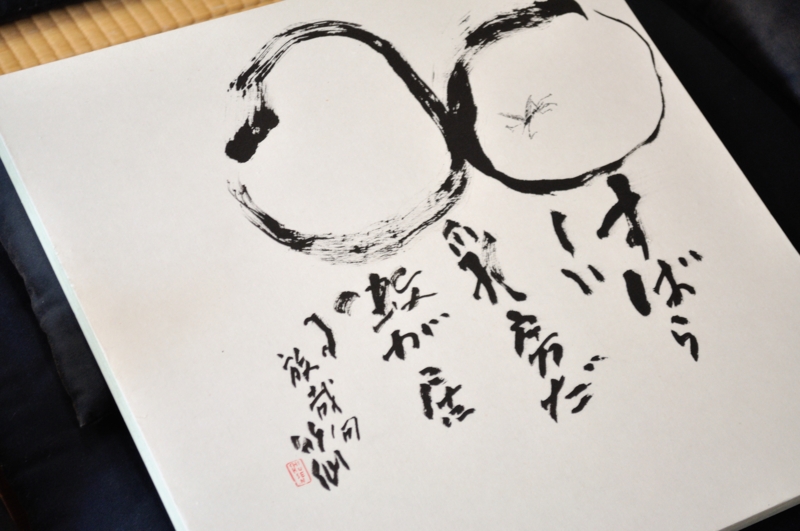 すばら
しい
乳房だ
蚊が居
る
放哉句